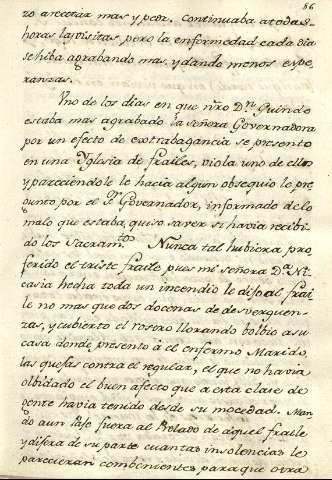 66
zo arecetar mas y peor. continuaba atodas
horas las visitas pero la enfermedad cada dia
se hiba agrabando mas, y dando menos espe
ranzas.
Uno de los dias en que nro Dn. Guindo
estaba mas agrabado la señora Governadora
por un efecto de extrabagancia se presento
en una Yglesia de frailes, viola uno de ellos
y pareciendole le hacia algun obsequio le pre
gunto por el Sr. Governador, informado delo
malo que estaba, quiso saver si havia recibi
do los Sacramtos. Nunca tal hubiera pro
ferido el triste fraile pues mi señora Da. Ni
casia hecha toda un incendio le dijo al frai
le no mas que dos docenas de desverguen
zas, y cubierto el rostro llorando bolbio asu
casa donde presento â el enfermo Marido,
las quejas contra el regular, el que no havia
olbidado el buen afecto que a esta clase de
gente havia tenido desde su mocedad. Man
do aun Paje fuera al Prelado de aquel fraile
y dijera de su parte cuantas insolencias le
parecieran combenientes para que otra